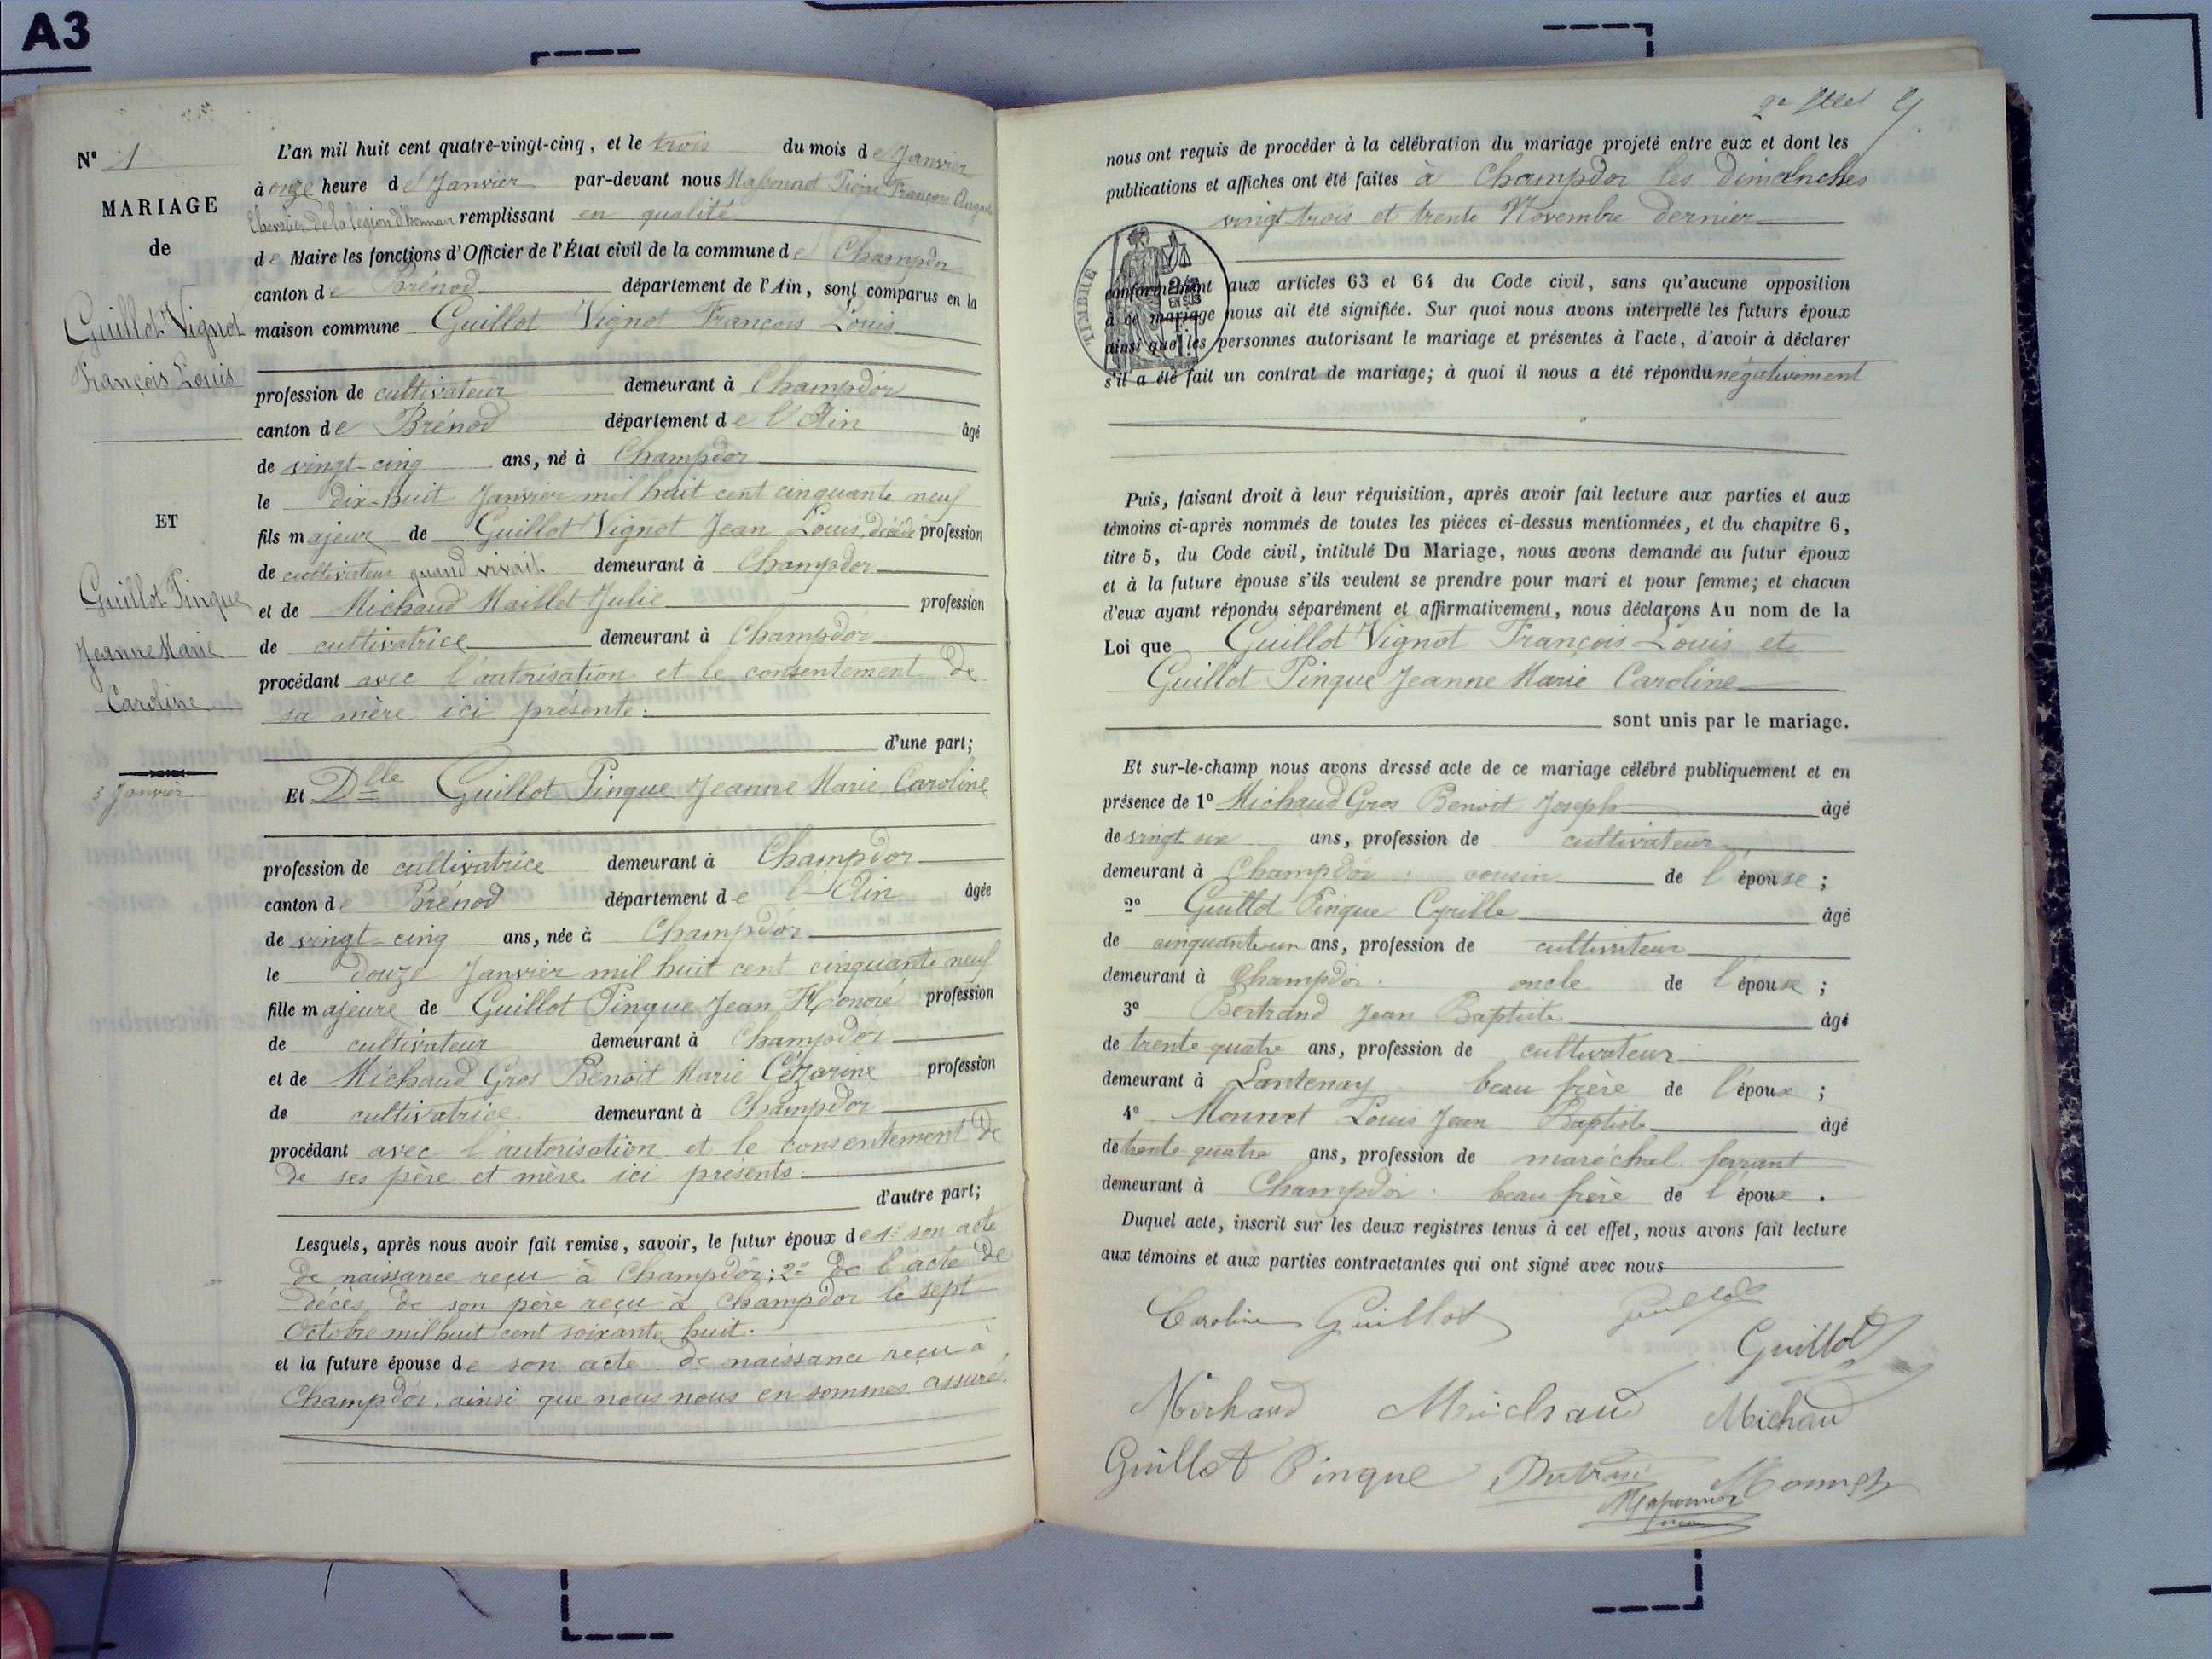 A3
N° 1
MARIAGE
de
Guillot Vignot
François Louis
ET
Guillot Pinque
Jeanne Marie
Caroline
3 Janvier
L'an mil huit cent quatre-vingt-cinq, et le trois du mois de Janvier
à onze heure de Janvier par-devant nous Pierre François Auguste
Chevalier de la légion d'honneur remplissant en qualité
de Maire les fonctions d'Officier de l'État civil de la commune de Champdor
canton de Brénod département de l'Ain, sont comparus en la
maison commune Guillot Vignot François Louis
profession de cultivateur demeurant à Champdor
canton de Brénod département de l'Ain âgé
de vingt-cinq ans, né à Champdor
le dix-huit Janvier mil huit cent cinquante neuf
fils majeur de Guillot Vignot Jean Louis, décédé profession
de cultivateur quand vivait demeurant à Champdor
et de Michaud Maillet Julie profession
de cultivatrice demeurant à Champdor
procédant avec l'autorisation et le consentement de
sa mère ici présente.
d'une part;
Et Dlle Guillot Pinque Jeanne Marie Caroline
profession de cultivatrice demeurant à Champdor
canton de Brénod département de l'Ain âgée
de vingt-cinq ans, née à Champdor
le douze Janvier mil huit cent cinquante neuf
fille majeure de Guillot Pinque Jean Honoré profession
de cultivateur demeurant à Champdor
et de Michaud Gros Benoit Marie Cézarine profession
de cultivatrice demeurant à Champdor
procédant avec l'autorisation et le consentement de
de ses père et mère ici présents
d'autre part;
Lesquels, après nous avoir fait remise, savoir, le futur époux de 1° son acte
de naissance reçu à Champdor; 2° de l'acte de
décès de son père reçu à Champdor le sept
Octobre mil huit cent soixante huit.
et la future épouse de son acte de naissance reçu à
Champdor, ainsi que nous nous en sommes assuré.
nous ont requis de procéder à la célébration du mariage projeté entre eux et dont les
publications et affiches ont été faites à Champdor les Dimanches
vingt-trois et trente Novembre dernier
TIMBRE
conformément aux articles 63 et 64 du Code civil, sans qu'aucune opposition
à ce mariage nous ait été signifiée. Sur quoi nous avons interpellé les futurs époux
ainsi que les personnes autorisant le mariage et présentes à l'acte, d'avoir à déclarer
s'il a été fait un contrat de mariage; à quoi il nous a été répondu négativement
Puis, faisant droit à leur réquisition, après avoir fait lecture aux parties et aux
témoins ci-après nommés de toutes les pièces ci-dessus mentionnées, et du chapitre 6,
titre 5, du Code civil, intitulé Du Mariage, nous avons demandé au futur époux
et à la future épouse s'ils veulent se prendre pour mari et pour femme; et chacun
d'eux ayant répondu séparément et affirmativement, nous déclarons Au nom de la
Loi que Guillot Vignot François Louis et
Guillot Pinque Jeanne Marie Caroline
sont unis par le mariage.
Et sur-le-champ nous avons dressé acte de ce mariage célébré publiquement et en
présence de 1° Michaud Gros Benoit Joseph âgé
de vingt six ans, profession de cultivateur
demeurant à Champdor. cousin de l'épouse;
2° Guillot Pinque Cyrille âgé
de cinquante un ans, profession de cultivateur
demeurant à Champdor. oncle de l'épouse;
3° Bertrand Jean Baptiste âgé
de trente quatre ans, profession de cultivateur
demeurant à Lantenay. beau frère de l'époux;
4° Monnet Louis Jean Baptiste âgé
de trente quatre ans, profession de maréchal ferrant
demeurant à Champdor. beau frère de l'époux.
Duquel acte, inscrit sur les deux registres tenus à cet effet, nous avons fait lecture
aux témoins et aux parties contractantes qui ont signé avec nous
Caroline Guillot Guillot
Guillot
Michaud Michaud Michaud
Guillot Pinque Bertrand Monnet